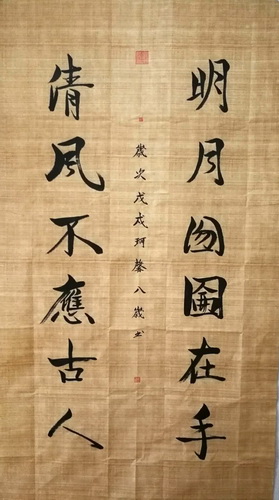 明月囫圇在手
清風不應古人
歲次戊戌珂馨八歲书